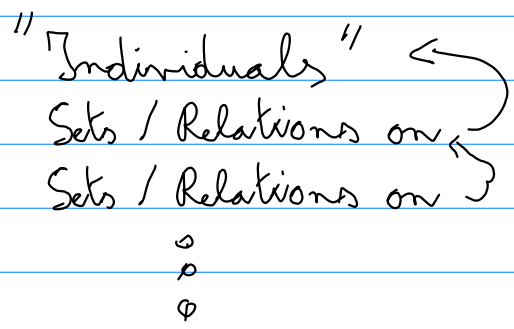 "Individuals"
Sets / Relations on
Sets / Relations on